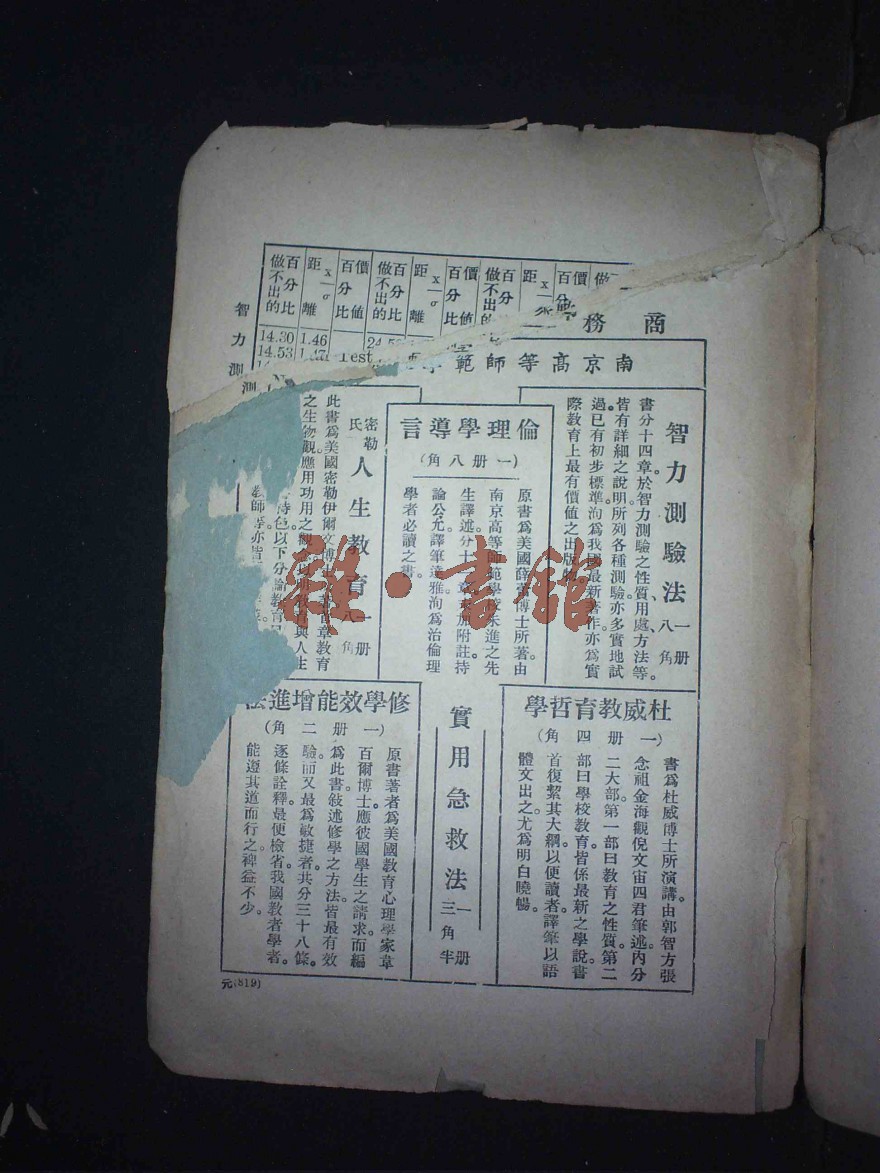 商務
南京高等師範學
智力測驗法
一册
八角
書分十四章於智力測驗之性質、用處、方法等。
皆有詳細之說明。所列各種測驗亦多實地試
過。已有初步標準。洵為我國最新著作。亦為實
際教育上最有價值之出版物。
倫理學導言
(一册八角)
原書爲美國薛蕾博士所著。由
南京高等師範學校朱進之先
生譯述。分十章。末加附註。持
論公允。譯筆達雅。洵爲治倫理
學者必讀之書。
密勒氏
人生教育
一册
八角
此書爲美國密勒伊爾文博士
章教育
之生物觀。應用功用之觀念以
與人生
特色。以下分論教育
教師等亦皆
杜威教育哲學
(一册四角)
書爲杜威博士所演講。由郭智方張
念祖金海觀倪文宙四君筆述。內分
二大部。第一部曰教育之性質。第二
部曰學校教育。皆係最新之學說。書
首復絜其大綱。以便讀者。譯筆以語
體文出之。尤爲明白曉暢。
實用急救法
一册
三角半
修學效能增進法
(一册二角)
原書著者爲美國教育心理學家韋
百爾博士。應彼國學生之請求。而編
爲此書。敍述修學之方法。皆最有效
驗。而又最爲敏捷者。共分三十八條。
逐條詮釋。最便檢省。我國教者學者。
能遵其道而行之。裨益不少。
元(819)
做不出的百分比
距離 x/σ
百分比價值
做不出的百分比
距離 x/σ
百分比價值
做不出的百分比
距
14.30 1.46
14.53
Test
智力測
雜·書館